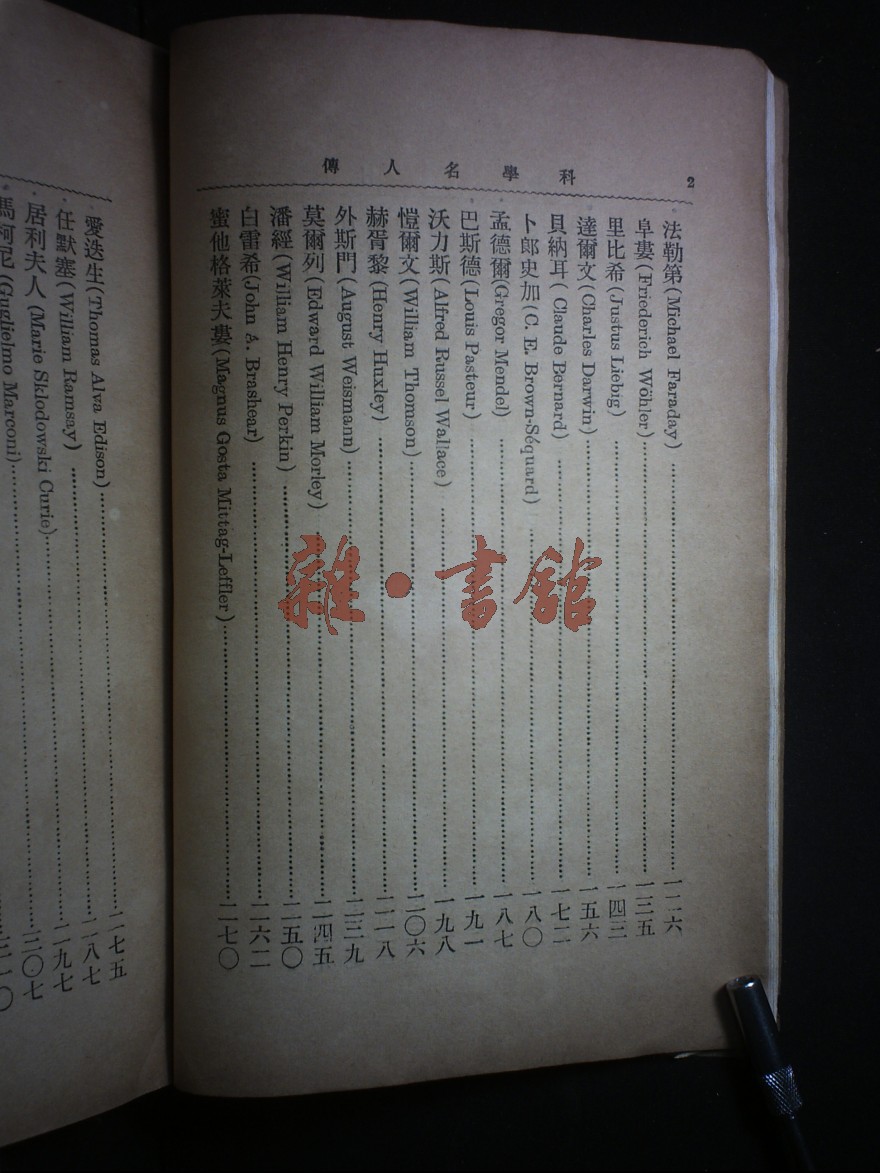 2
科學名人傳
法勒第(Michael Faraday)……一二六
阜婁(Friederich Wöhler)……一三五
里比希(Justus Liebig)……一四三
達爾文(Charles Darwin)……一五六
貝納耳(Claude Bernard)……一七二
卜郎史加(C. E. Brown-Séquard)……一八〇
孟德爾(Gregor Mendel)……一八七
巴斯德(Louis Pasteur)……一九一
沃力斯(Alfred Russel Wallace)……一九八
愷爾文(William Thomson)……二〇六
赫胥黎(Henry Huxley)……二一八
外斯門(August Weismann)……二三九
莫爾列(Edward William Morley)……二四五
潘經(William Henry Perkin)……二五〇
白雷希(John A. Brashear)……二六二
蜜他格萊夫婁(Magnus Gosta Mittag-Leffler)……二七〇
愛迭生(Thomas Alva Edison)……二七五
任默塞(William Ramsay)……二八七
居利夫人(Marie Sklodowski Curie)……二九七
馬柯尼(Guglielmo Marconi)……三〇七
三一〇
雜·書館